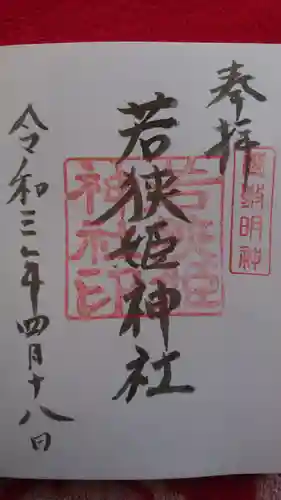 奉拝
若狭姫神社
令和三年四月十八日
若狭姫神社印